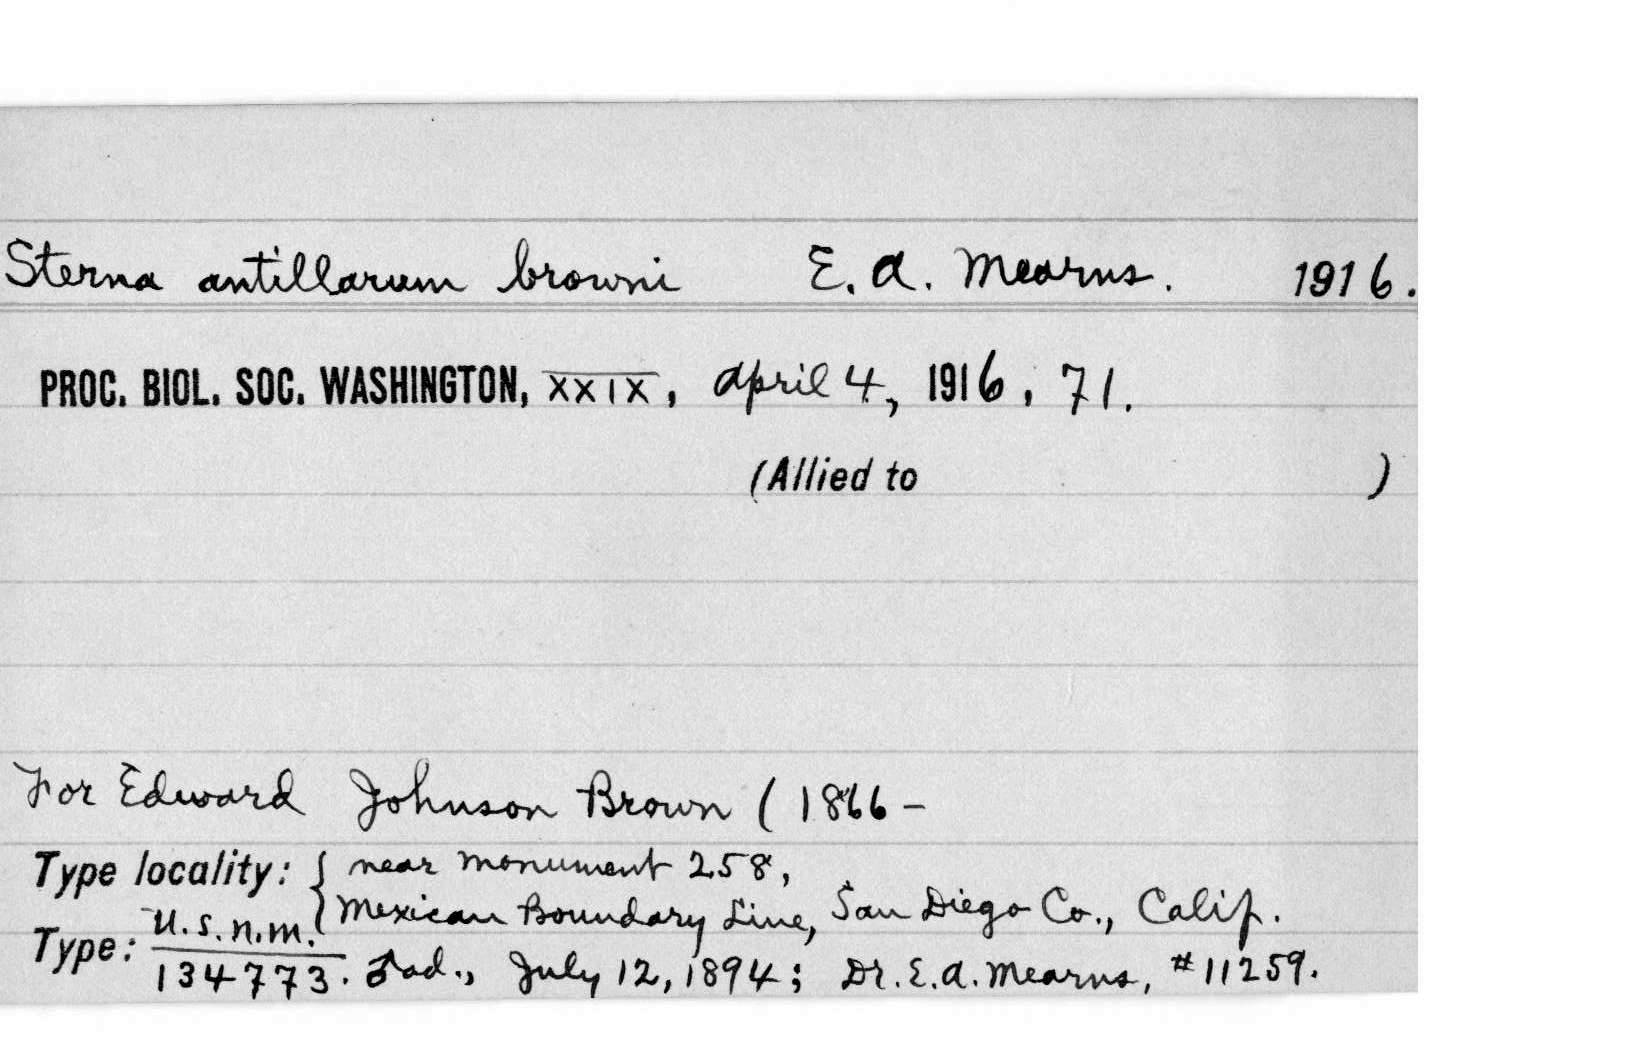 Sterna antillarum browni E. A. Mearns. 1916.
PROC. BIOL. SOC. WASHINGTON, XXIX, April 4, 1916, 71.
(Allied to )
For Edward Johnson Brown (1866 –
Type locality: { near monument 258,
Mexican Boundary Line, San Diego Co., Calif.
Type: U.S.N.M. 134773. ♂ ad., July 12, 1894; Dr. E. A. Mearns, #11259.